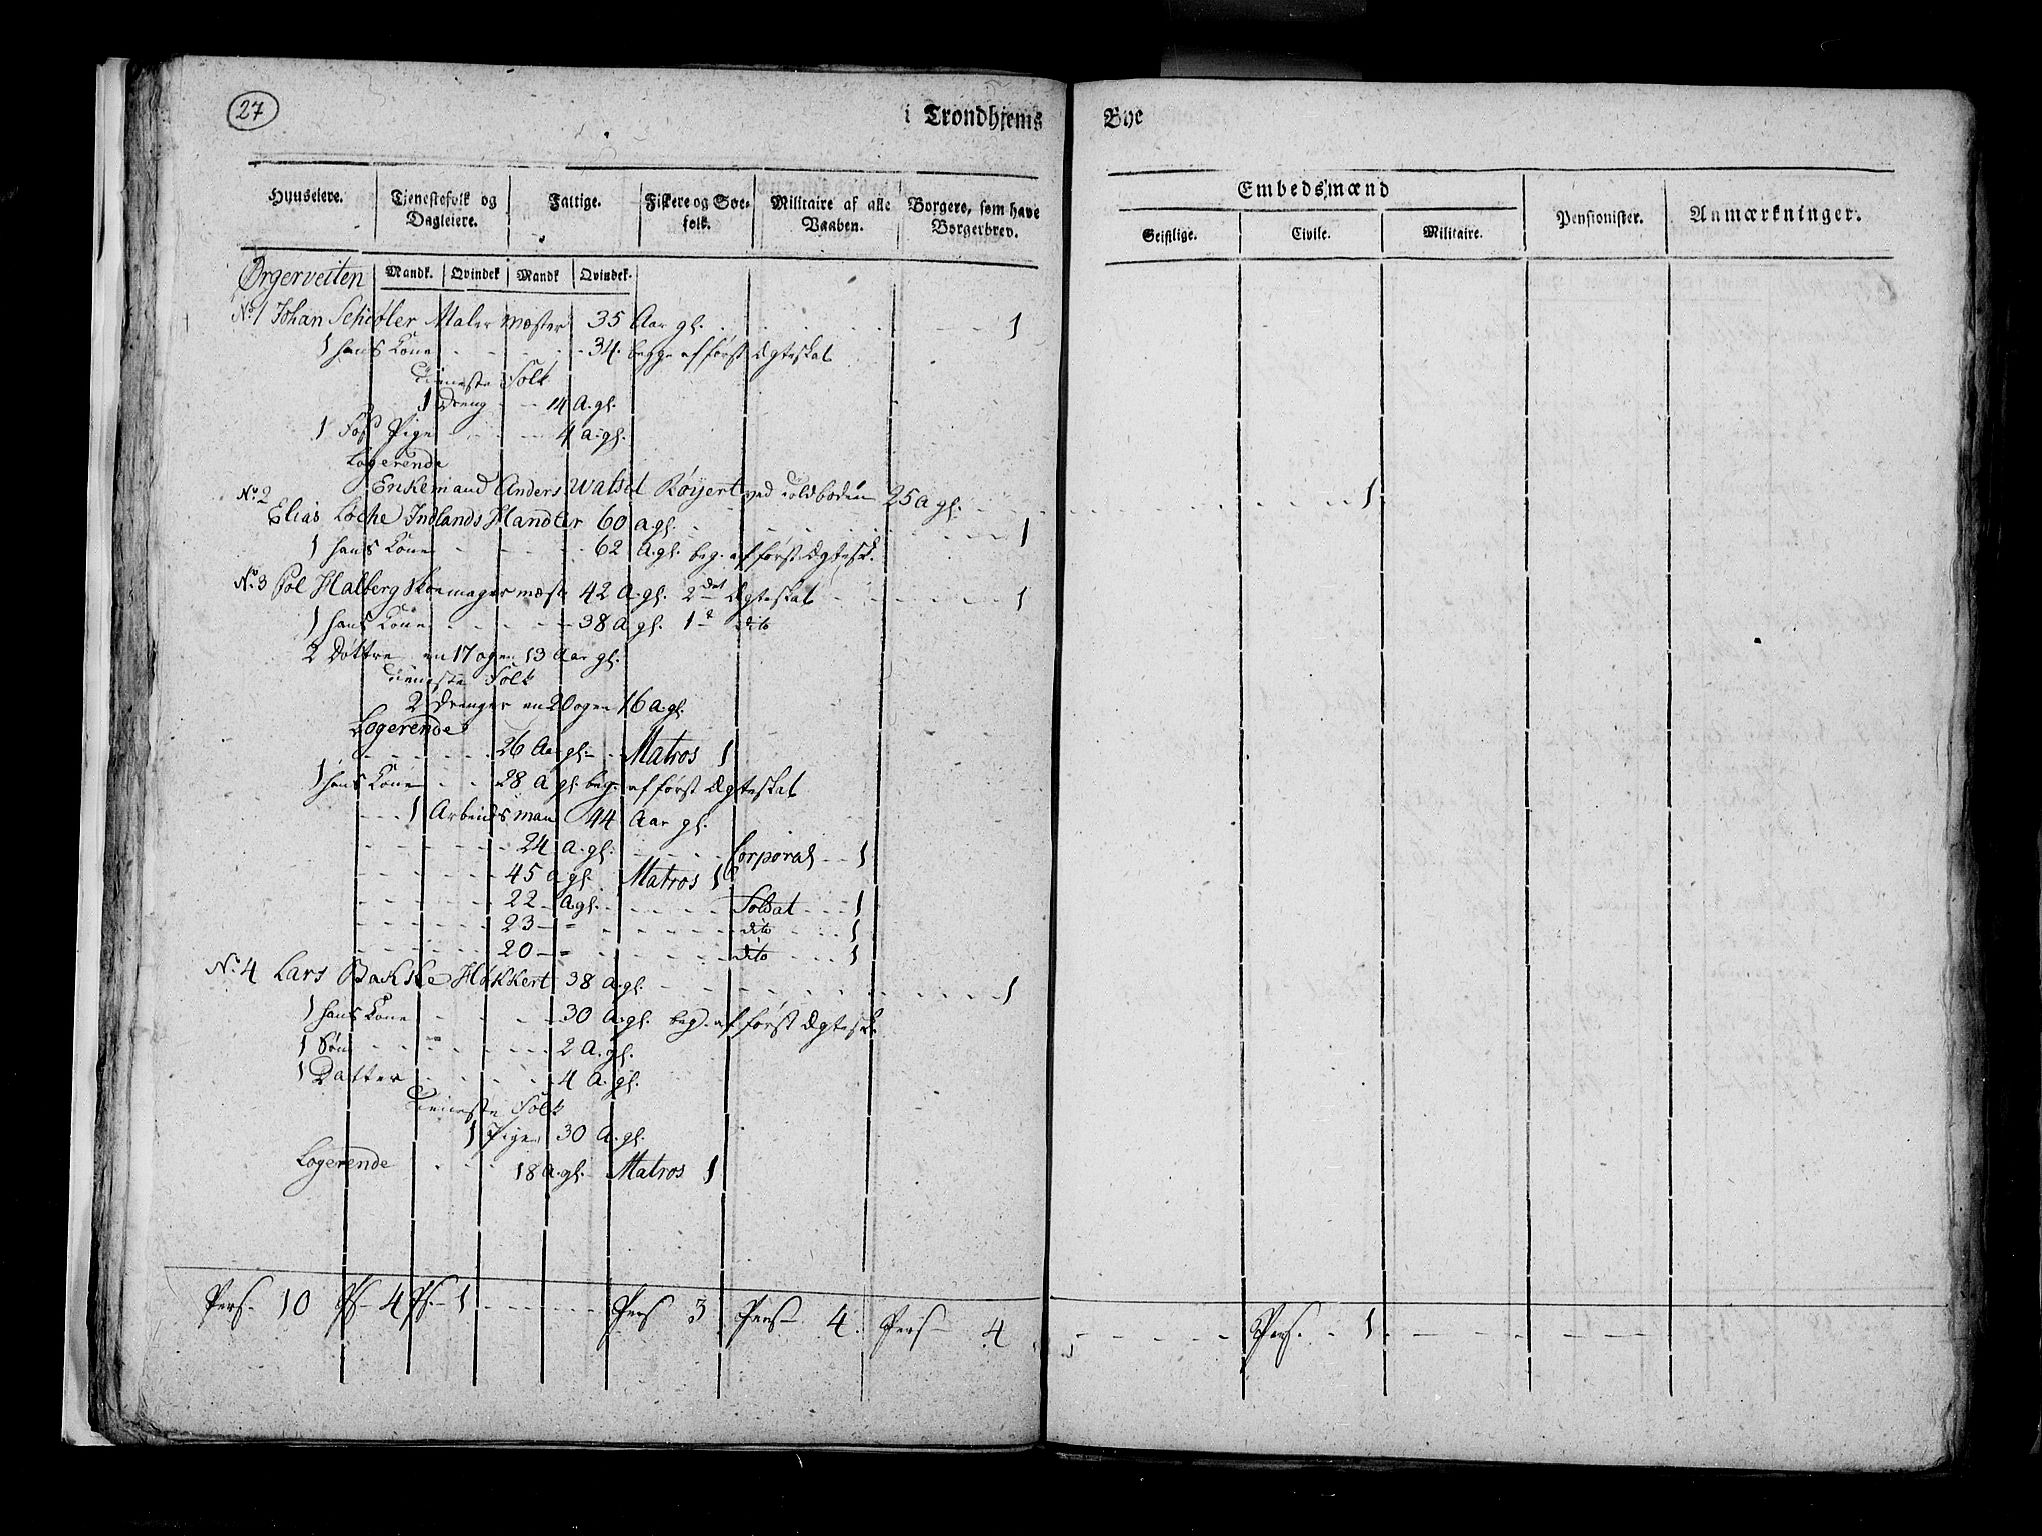 27
i Trondhjems Bye
Huuseiere. Tjenestefolk og Dagleiere. Fattige. Fiskere og Søe-folk. Militaire af alle Vaaben. Borgere, som have Borgerbrev.
Embedsmænd Pensionister. Anmærkninger.
Geistlige. Civile. Militaire.
Mandk. Qvindek Mandk Qvindek.
Ørgerveiten
No 1 Johan Schiøler Maler Mæster 35 Aar gl. 1
1 hans Kone 34. begge af først Ægteskab
Tieneste Folk
1 Dreng 14 A. gl.
1 Pige 4 A. gl.
Logerende
Enkemand Anders Walset Røyert ved Toldboden 25 A gl. 1
No. 2
Elias Loche Indlands Handler 60 A gl. 1
1 hans Kone 62 A. gl. beg. af først Ægtesk.
No. 3 Pol Halberg Skoemager mæst 42 A. gl. 2det Ægteskab 1
1 hans Kone 38 A gl. 1t dito
2 Døttre en 17 og en 13 Aar gl.
Tieneste Folk
2 Drenger en 20 og en 16 A. gl.
Logerende
26 Aar gl. Matros 1
1 hans Kone 28 A gl. beg. af først Ægteskab
1 Arbeidsman 44 Aar gl.
24 A. gl. Corporal 1
45 A gl. Matros 1
22 A gl. Soldat 1
23 dito 1
20 dito 1
No. 4 Lars Bakke Høkkert 38 A. gl. 1
1 hans Kone 30 A. gl. beg. af først Ægtesk.
1 Søn 2 A. gl.
1 Datter 4 A. gl.
Tieneste Folk
1 Pige 30 A. gl.
Logerende 18 A. gl. Matros 1
Pers. 10 Ps. 4 Ps. 1 Pers 3 Pers 4. Pers 4 Pers. 1